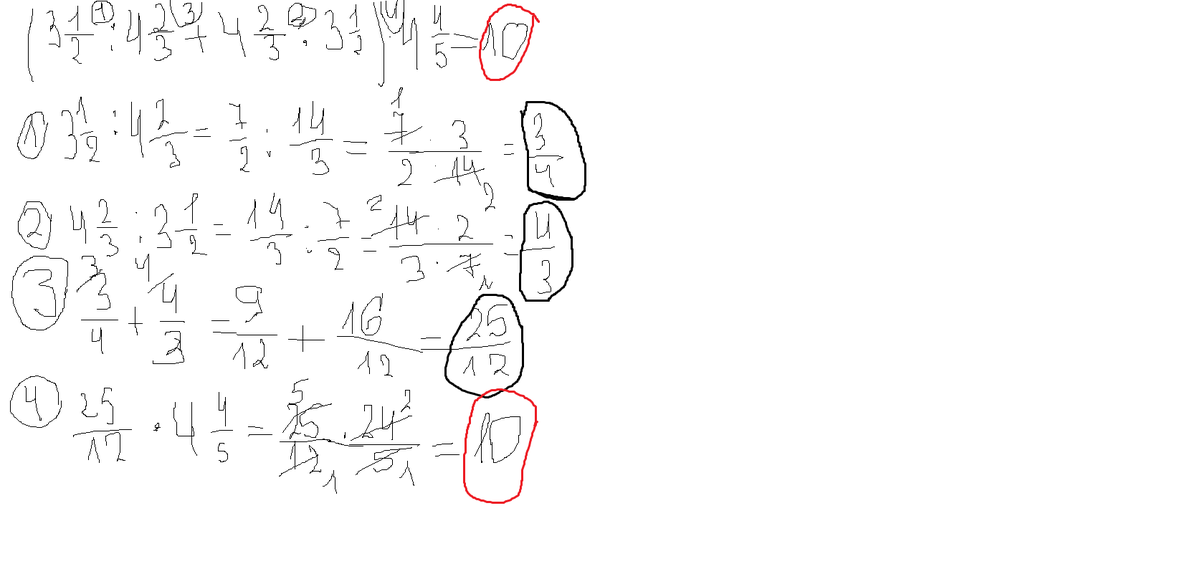 (3 1/2 : 4 2/3 + 4 2/3 : 3 1/2) · 4 4/5 = 10
① 3 1/2 : 4 2/3 = 7/2 : 14/3 = 7 · 3 / 2 · 14 = 3/4
② 4 2/3 : 3 1/2 = 14/3 : 7/2 = 14 · 2 / 3 · 7 = 4/3
③ 3/4 + 4/3 = 9/12 + 16/12 = 25/12
④ 25/12 · 4 4/5 = 25/12 · 24/5 = 10